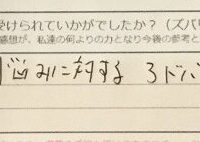 受けられていかがでしたか？（ズバリ
感想が、私達の何よりの力となり今後の参考と
悩みに対する アドバ